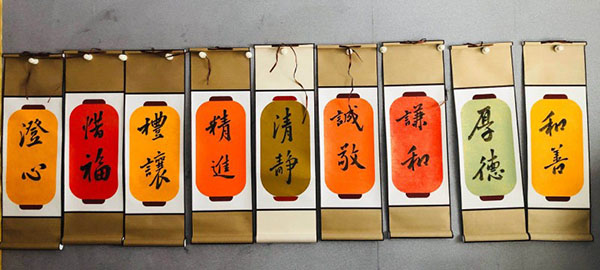 澄心
惜福
禮讓
精進
清靜
誠敬
謙和
厚德
和善